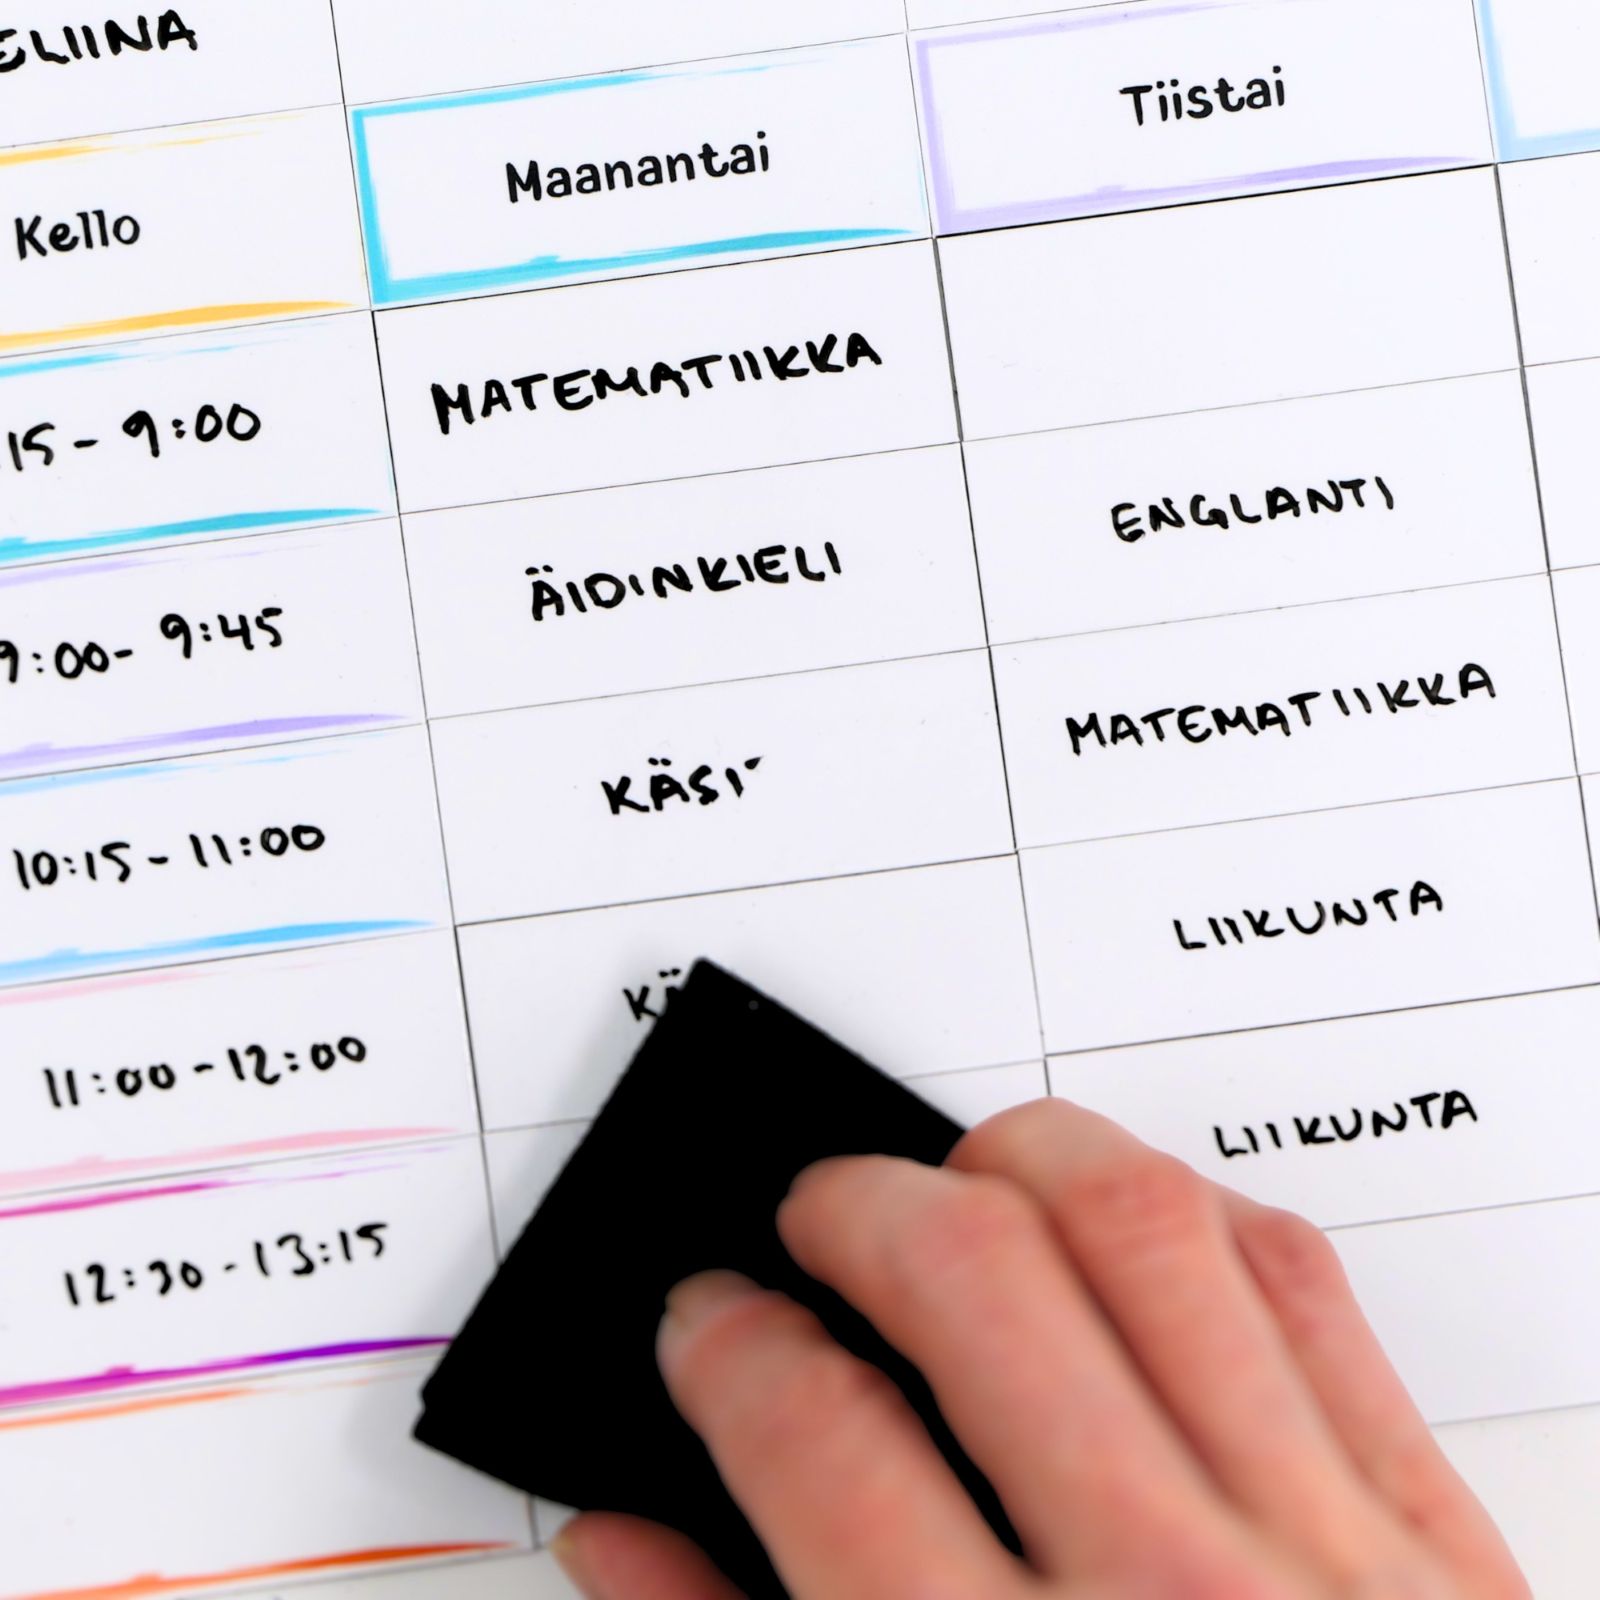 ELIINA
Kello Maanantai Tiistai
15 - 9:00 MATEMATIIKKA
9:00 - 9:45 ÄIDINKIELI ENGLANTI
10:15 - 11:00 KÄSI MATEMATIIKKA
11:00 - 12:00 KÄ LIIKUNTA
12:30 - 13:15 LIIKUNTA